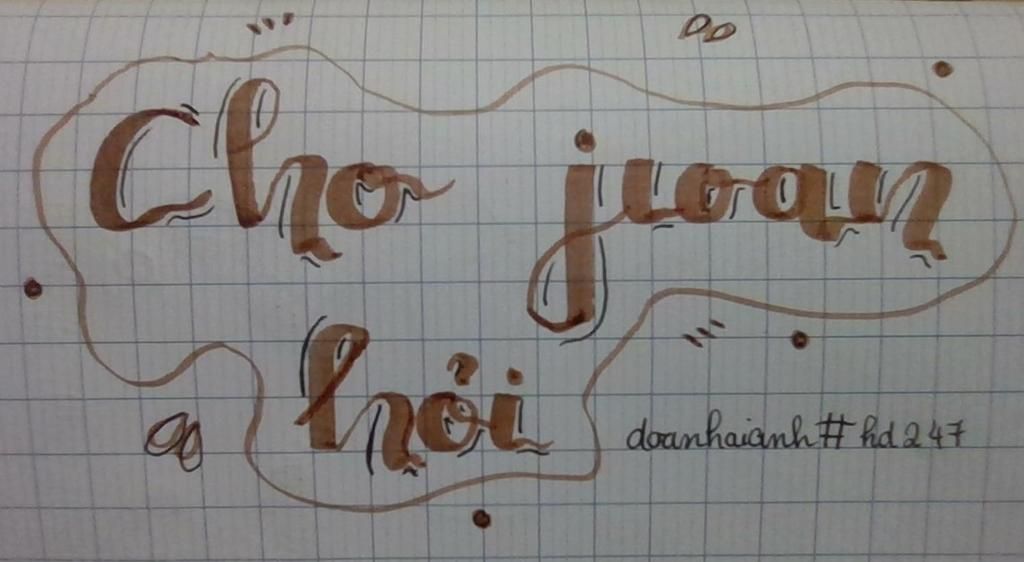 Cho juoan
hỏi
doanhaianh#hd247